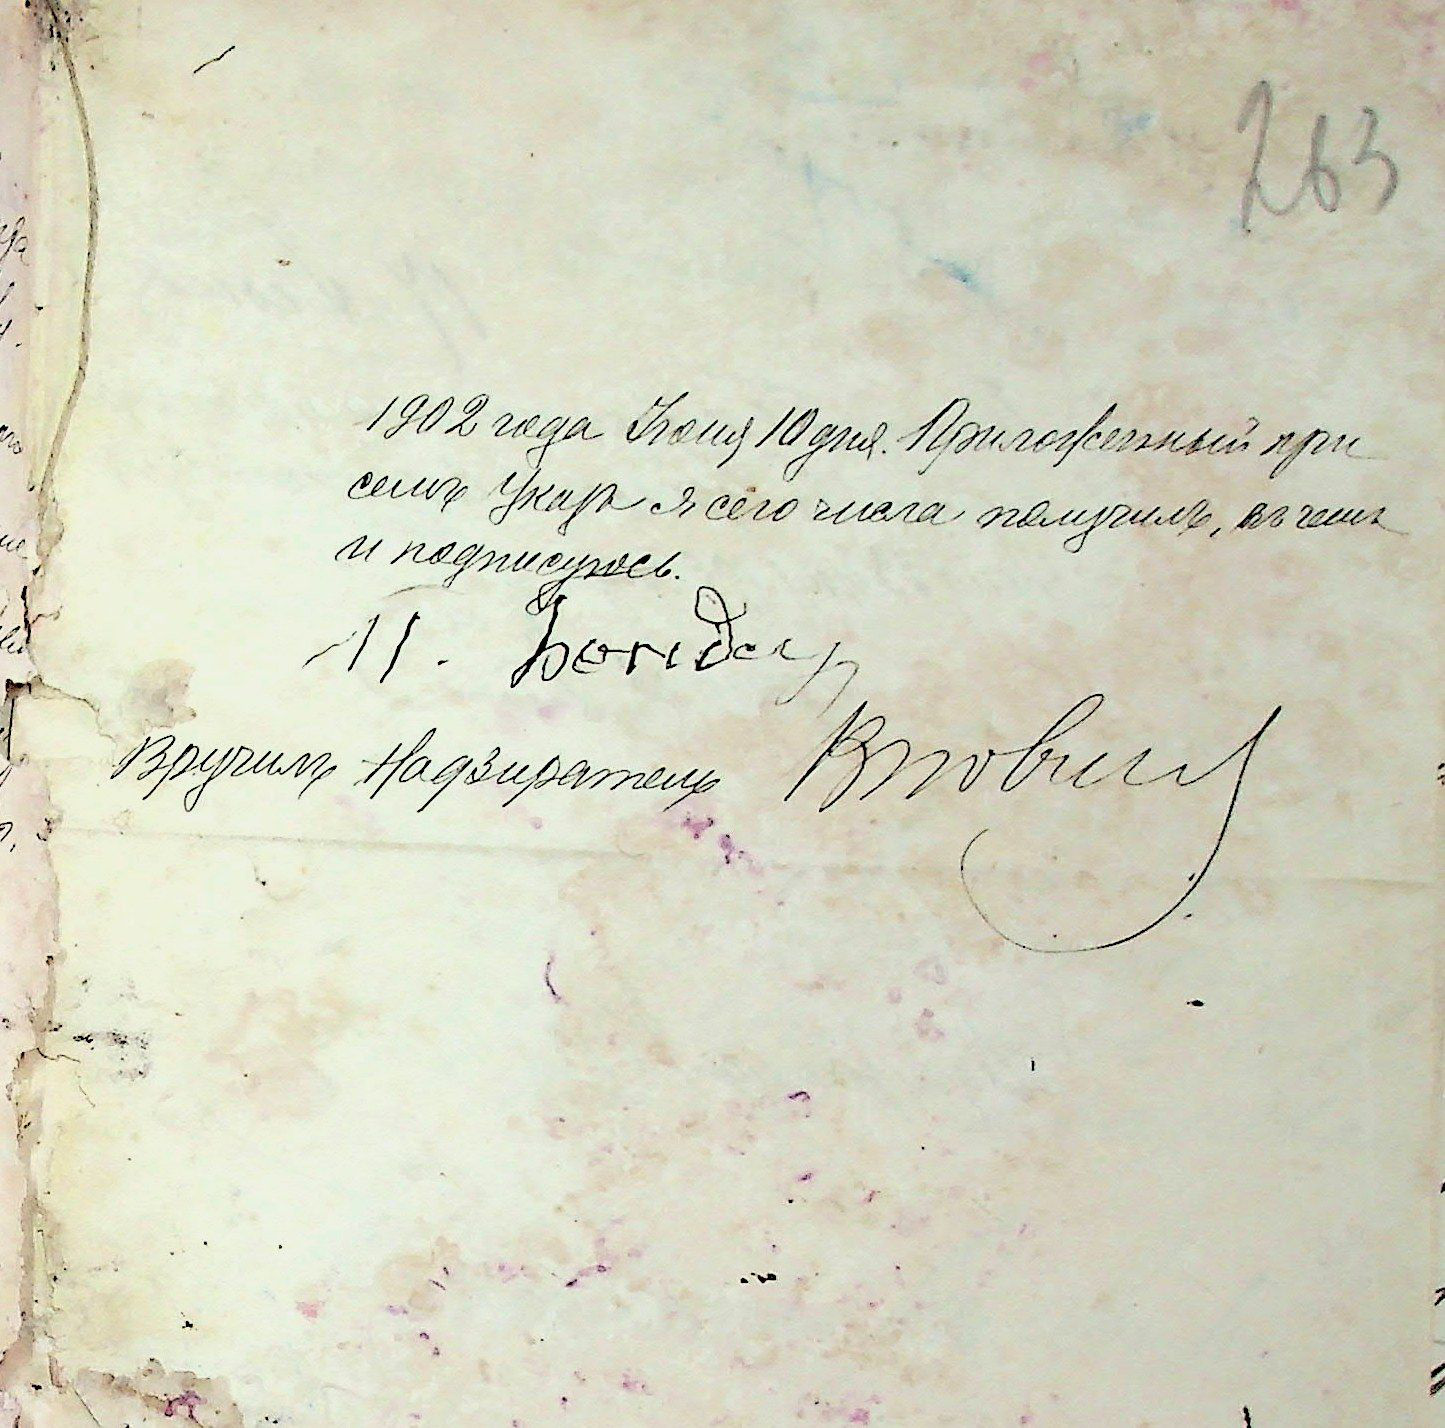 263
1902 года Іюня 10 дня. Приложенный при
семъ Указъ я сего числа получилъ, въ чемъ
и подписуюсь.
П. Бондар
Вручилъ Надзиратель